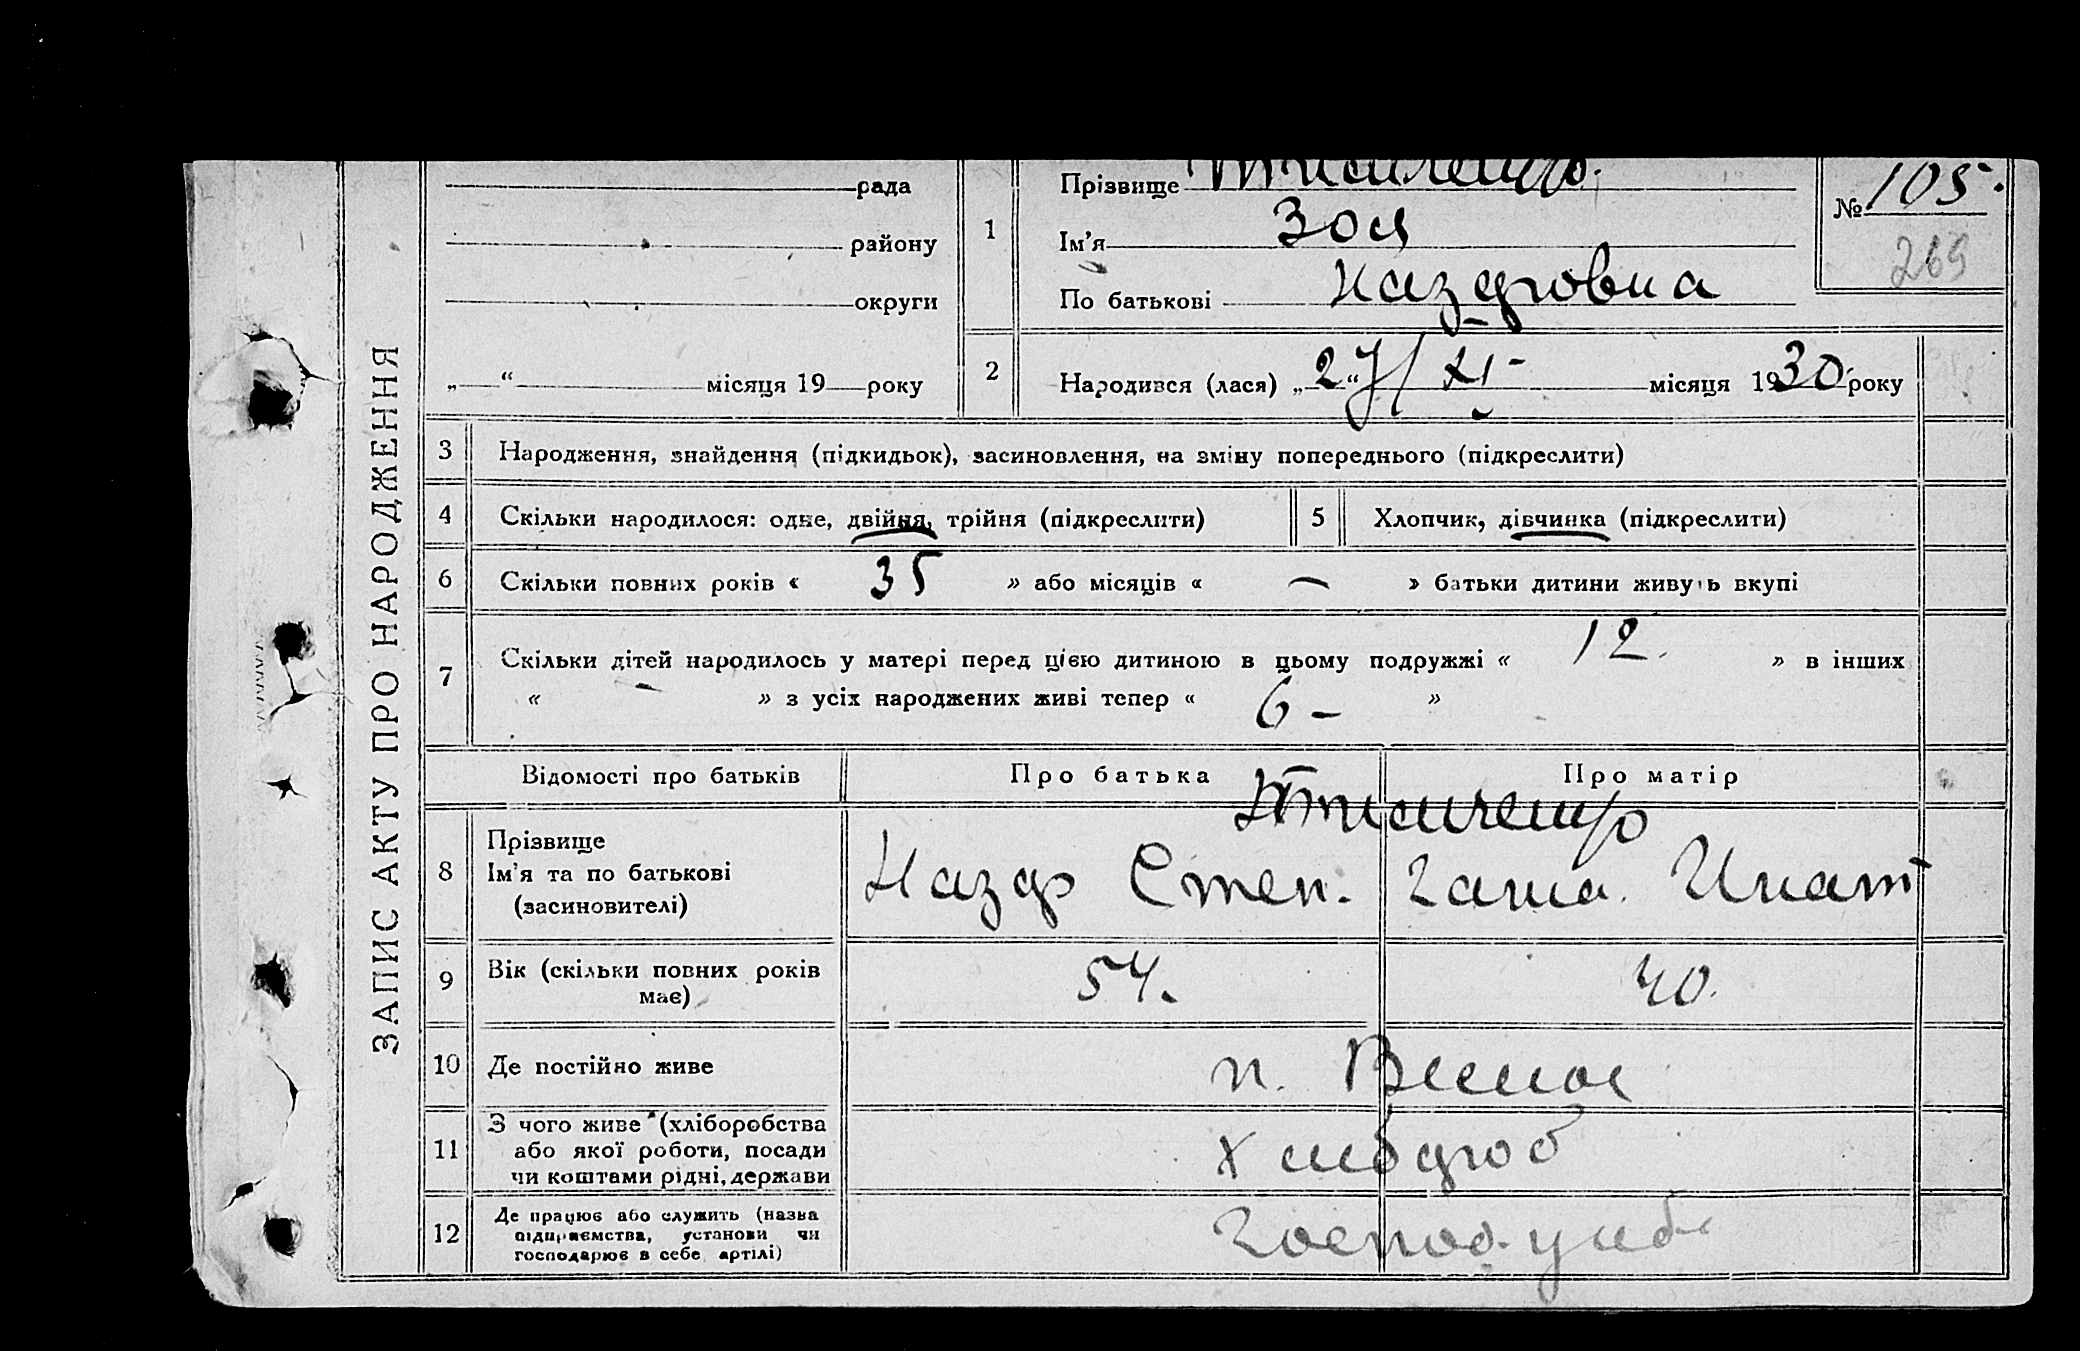 ЗАПИС АКТУ ПРО НАРОДЖЕННЯ
рада
району
округи
„ “ місяця 19 року
1
Прізвище
Ім'я Зоя
По батькові Назаровна
№ 105.
269
2
Народився (лася) „27“ / XI - місяця 1930 року
3 Народження, знайдення (підкидьок), засиновлення, на зміну попереднього (підкреслити)
4 Скільки народилося: одне, двійня, трійня (підкреслити)
5 Хлопчик, дівчинка (підкреслити)
6 Скільки повних років « 35 » або місяців « — » батьки дитини живуть вкупі
7 Скільки дітей народилось у матері перед цією дитиною в цьому подружжі « 12. » в інших
« — » з усіх народжених живі тепер « 6 - »
Відомості про батьків
Про батька
Про матір
8
Прізвище
Ім'я та по батькові
(засиновителі)
Назар Степ.
Ганна. Игнат
9 Вік (скільки повних років
має)
54.
40.
10 Де постійно живе
п.
11 З чого живе (хліборобства
або якої роботи, посади
чи коштами рідні, держави
Хлібороб
12 Де працює або служить (назва
підприємства, установи чи
господарює в себе, артілі)
Господ. у себе